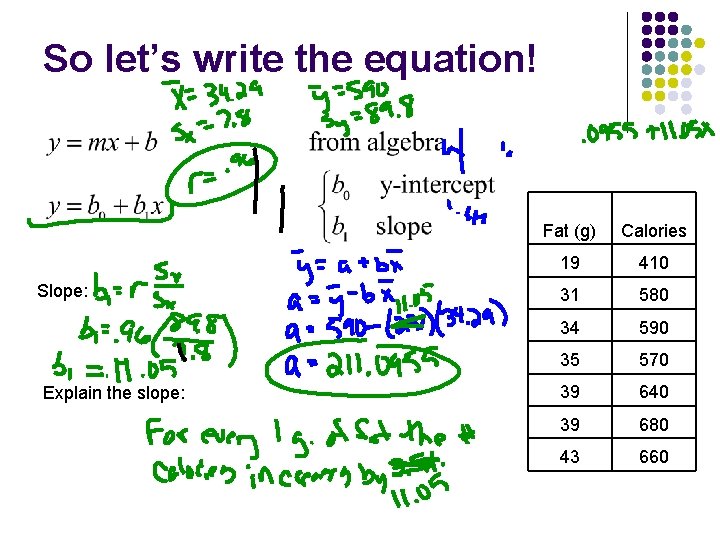 So let's write the equation!
x̄ = 34.29
sx = 7.8
ȳ = 590
sy = 89.8
y = mx + b
from algebra
r = .96
.0955 + 11.05x
y = b₀ + b₁x
b₀ y-intercept
b₁ slope
Slope: b₁ = r sx/sx
b₁ = .96 (89.8/7.8)
b₁ = 11.05
ȳ = a + bx̄
a = ȳ - bx̄
11.05
a = 590 - ( )(34.29)
a = 211.0955
Explain the slope:
For every 1 g. of fat the #
calories increases by
11.05
Fat (g) Calories
19 410
31 580
34 590
35 570
39 640
39 680
43 660